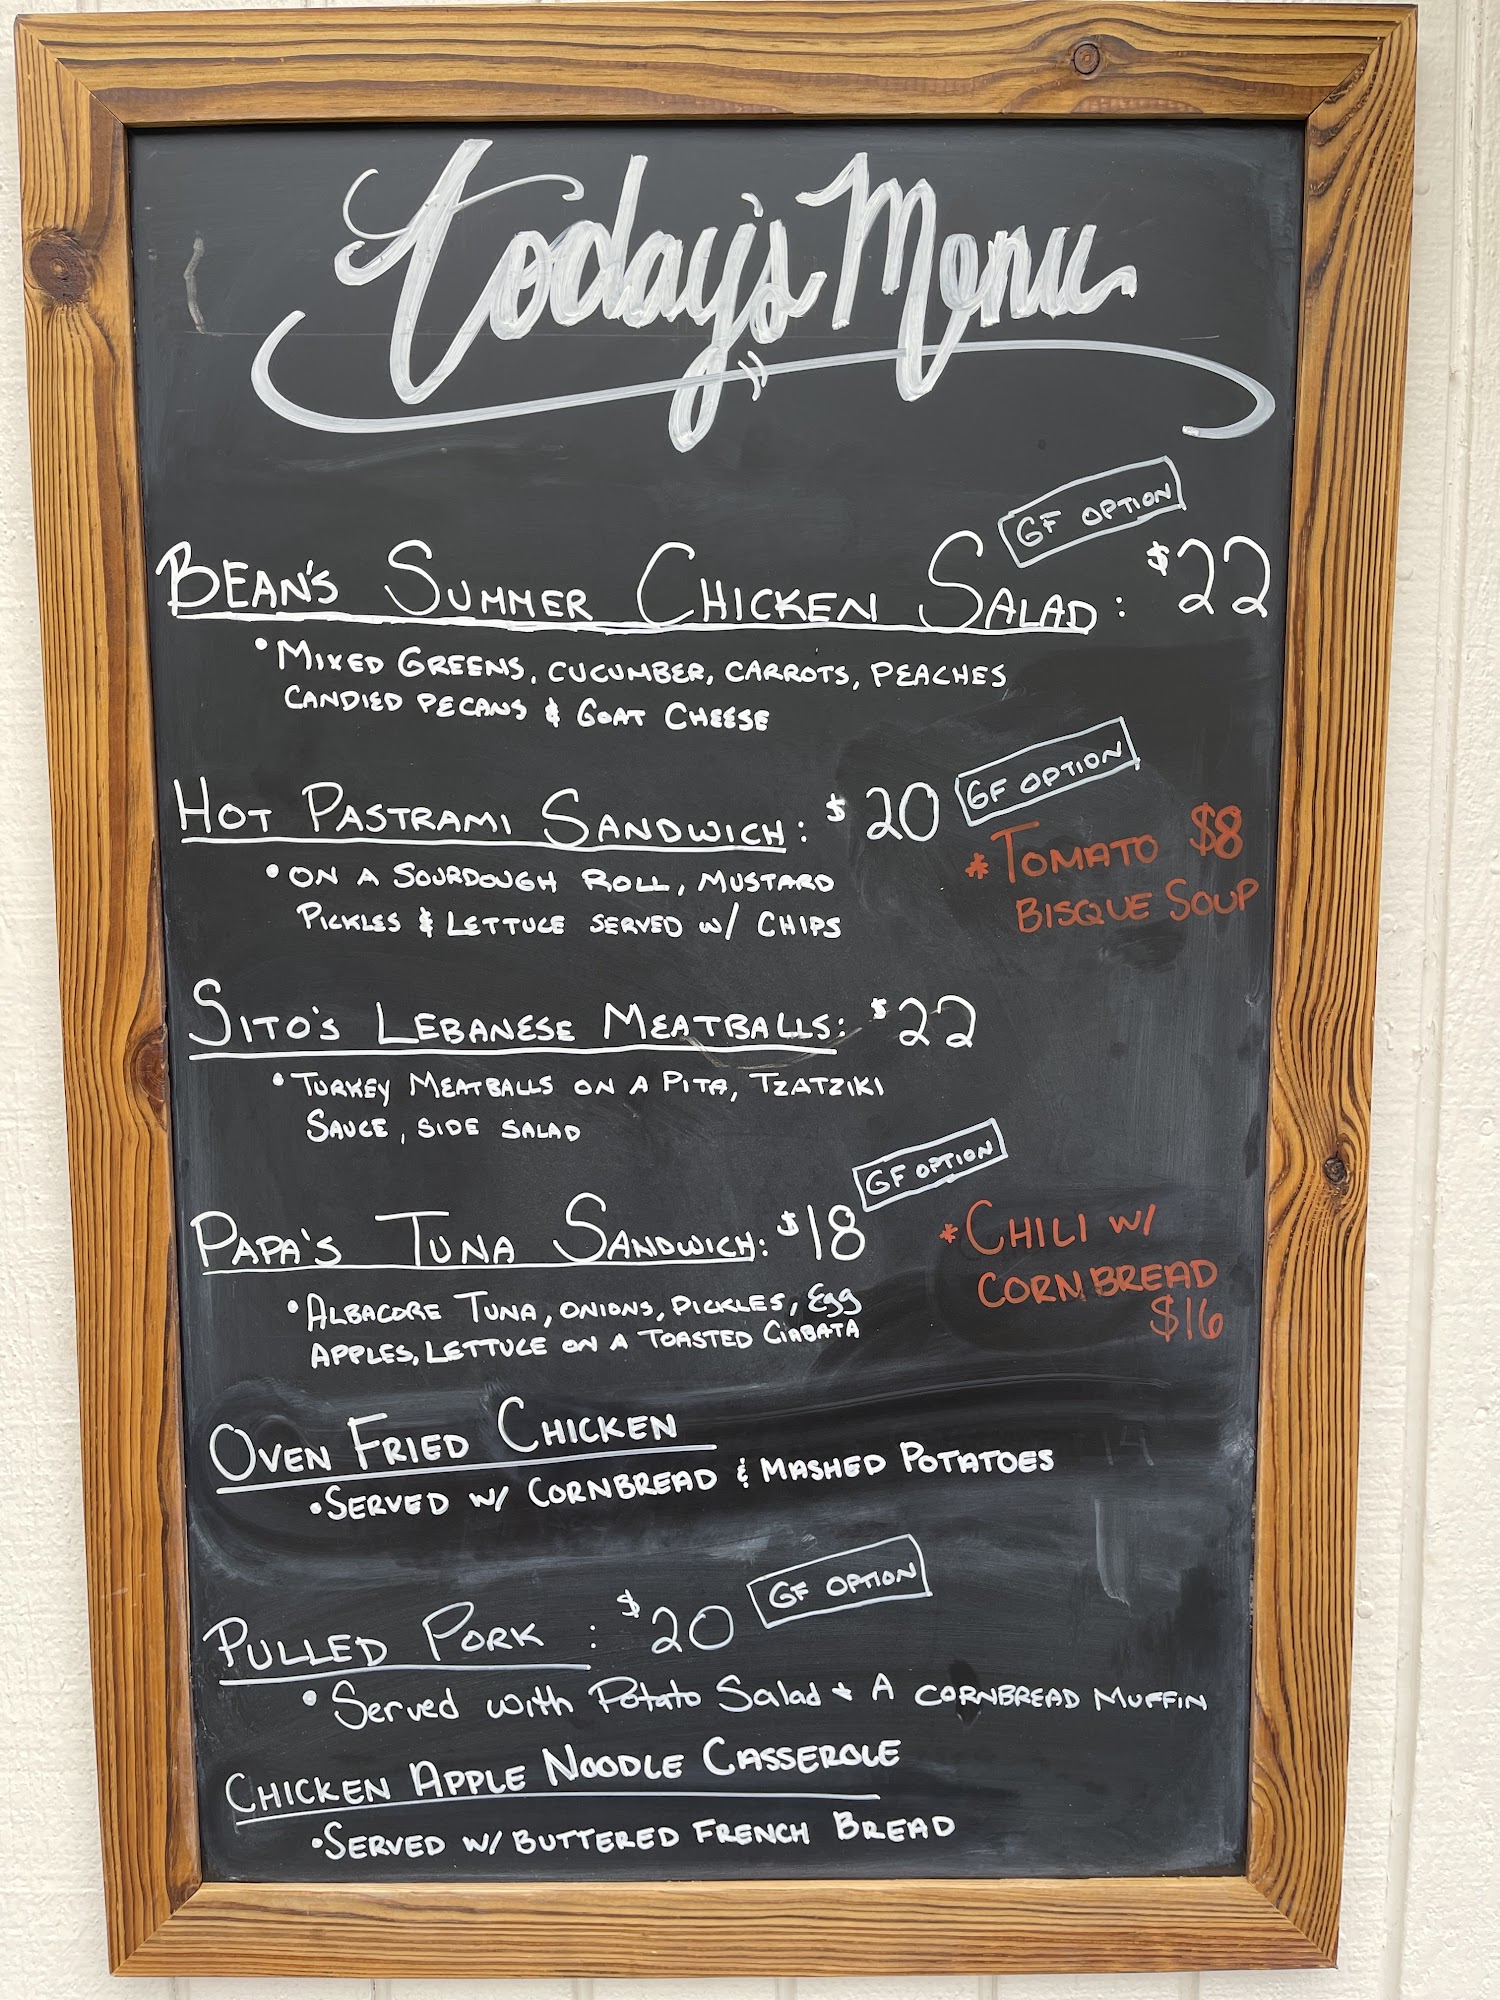 Today's Menu
GF OPTION
BEAN'S SUMMER CHICKEN SALAD: $22
• MIXED GREENS, CUCUMBER, CARROTS, PEACHES
CANDIED PECANS & GOAT CHEESE
GF OPTION
HOT PASTRAMI SANDWICH: $20
• ON A SOURDOUGH ROLL, MUSTARD
PICKLES & LETTUCE SERVED W/ CHIPS
* TOMATO $8
BISQUE SOUP
SITO'S LEBANESE MEATBALLS: $22
• TURKEY MEATBALLS ON A PITA, TZATZIKI
SAUCE, SIDE SALAD
GF OPTION
PAPA'S TUNA SANDWICH: $18
• ALBACORE TUNA, ONIONS, PICKLES, Egg
APPLES, LETTUCE ON A TOASTED CIABATA
* CHILI W/
CORNBREAD
$16
OVEN FRIED CHICKEN
• SERVED W/ CORNBREAD & MASHED POTATOES
GF OPTION
PULLED PORK : $20
• Served with Potato Salad & A CORNBREAD MUFFIN
CHICKEN APPLE NOODLE CASSEROLE
• SERVED W/ BUTTERED FRENCH BREAD